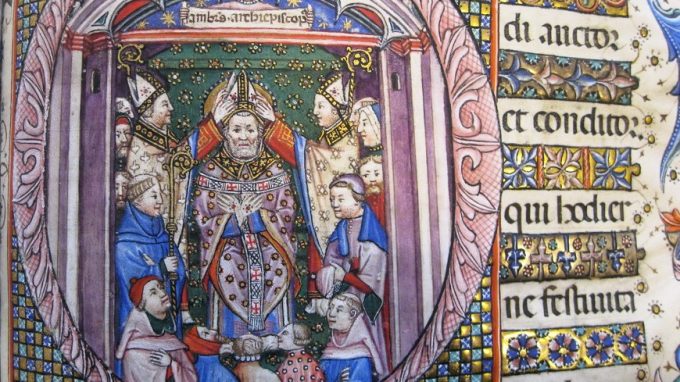 ambs·archiepiscop
di auctor
et conditor
qui hodier
ne festiuita